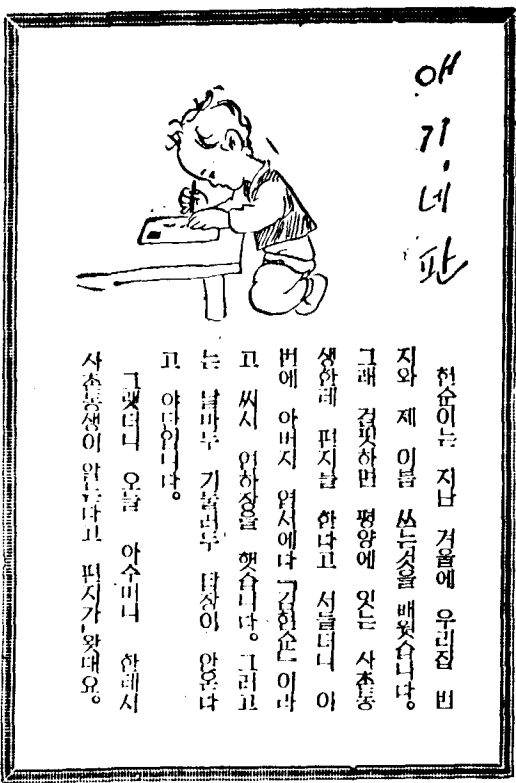 애기네판
현순이는 지난 겨울에 우리집 번
지와 제 이름 쓰는것을 배웟습니다.
그래 걸핏하면 평양에 잇는 사촌동
생한테 편지를 한다고 서들더니 이
번에 아버지 엽서에다 「김현순」이라
고 써서 연하장을 햇습니다. 그리고
는 날마두 기둘러두 답장이 안온다
고 야단입니다.
그랫더니 오늘 아수머니 한테서
사촌동생이 앓는다고 편지가 왓대요.